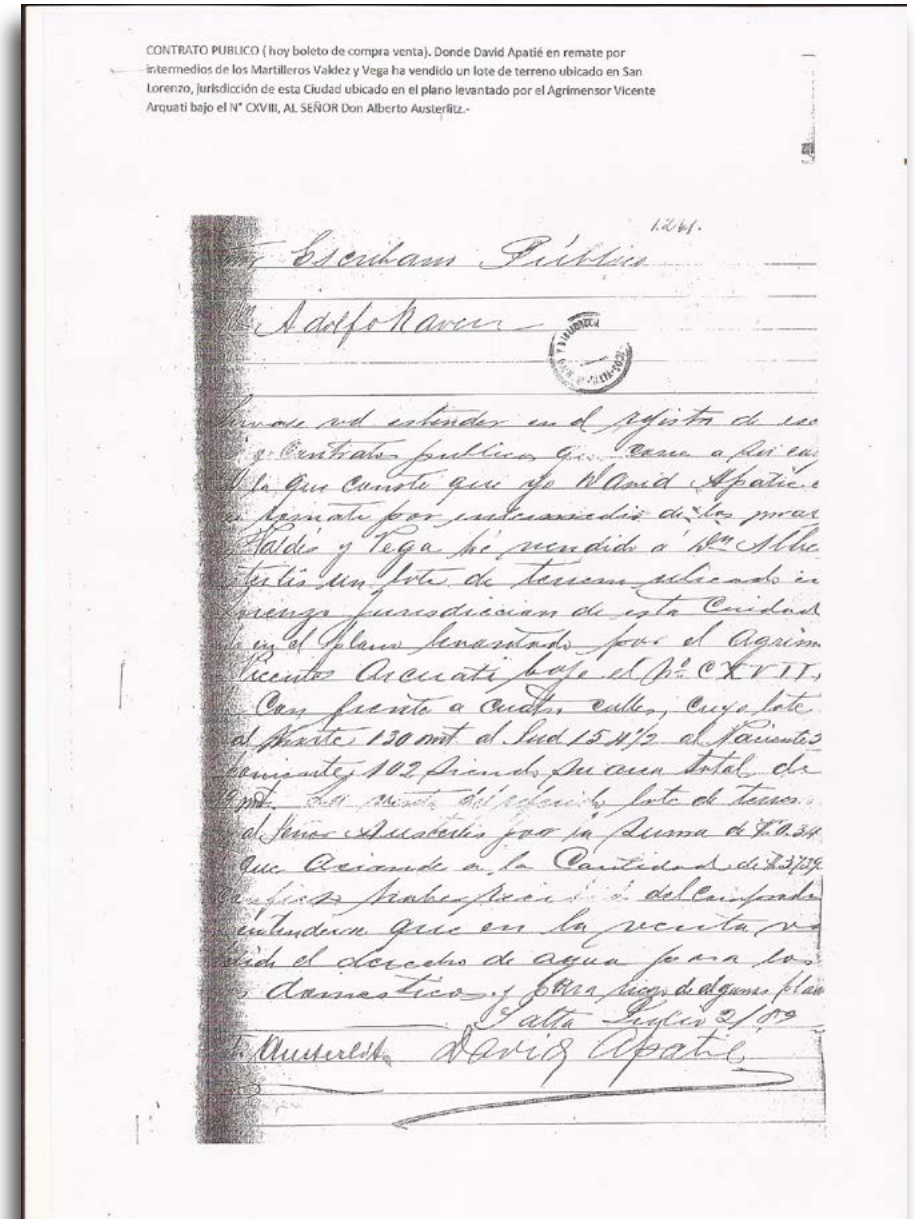 CONTRATO PUBLICO ( hoy boleto de compra venta). Donde David Apatié en remate por
intermedios de los Martilleros Valdez y Vega ha vendido un lote de terreno ubicado en San
Lorenzo, jurisdicción de esta Ciudad ubicado en el plano levantado por el Agrimensor Vicente
Arquati bajo el N° CXVIII, AL SEÑOR Don Alberto Austerlitz.-
1.261.
Escribano Público
Adolfo
estender en el registro de esc
Contratos publicos que corre a su car
la que conste que yo David Apatie e
remate por intermedio de los
Valdés y Vega he vendido a Dn Albe
un lote de terreno ubicado en
renzo jurisdiccion de esta Ciudad
en el plano levantado por el Agrim
Vicente Arcuati bajo el No CXVII
Con frente a cuatro calles, cuyo lote
al Norte 130 mt. al Sud 154 1/2 al Naciente
102 siendo su area total de
mt. La venta del referido lote de terren
al Señor Austerlis por la suma de $ 0.34
que a la Cantidad de $ 3739
del comprador
que en la venta va
el derecho de agua para los
domesticos y para riego de algunas plan
Salta Julio 2/09
Austerlitz David Apatie